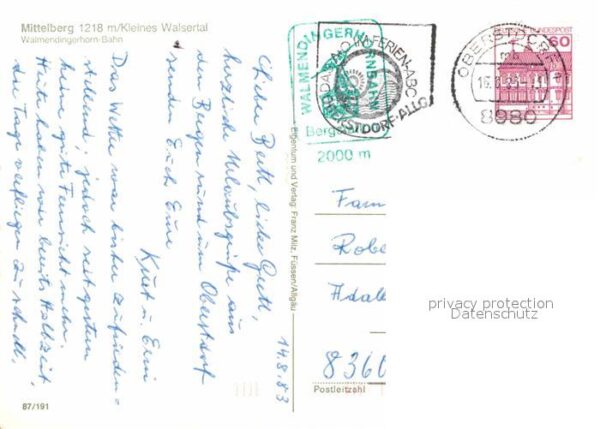 Mittelberg 1218 m/Kleines Walsertal
Walmendingerhorn-Bahn
14.8.83
Lieber Bertl, liebe Gretl,
herzliche Urlaubsgrüße aus
den Bergen rund um Oberstdorf
senden Euch Eure
Kurt u. Erni
Das Wetter war bisher zufrieden-
stellend, jedoch seit gestern
keine gute Fernsicht mehr.
Heute haben wir bereits Halbzeit,
die Tage verfliegen zu schnell.
87/191
Eigentum und Verlag: Franz Milz, Füssen/Allgäu
WALMENDINGERHORNBAHN
Bergstation
2000 m
DAS FERIEN-ABC
OBERSTDORF-ALLG
OBERSTDORF
8980
BUNDESPOST
60
Fam
Robe
Adal
8360
Postleitzahl
privacy protection
Datenschutz